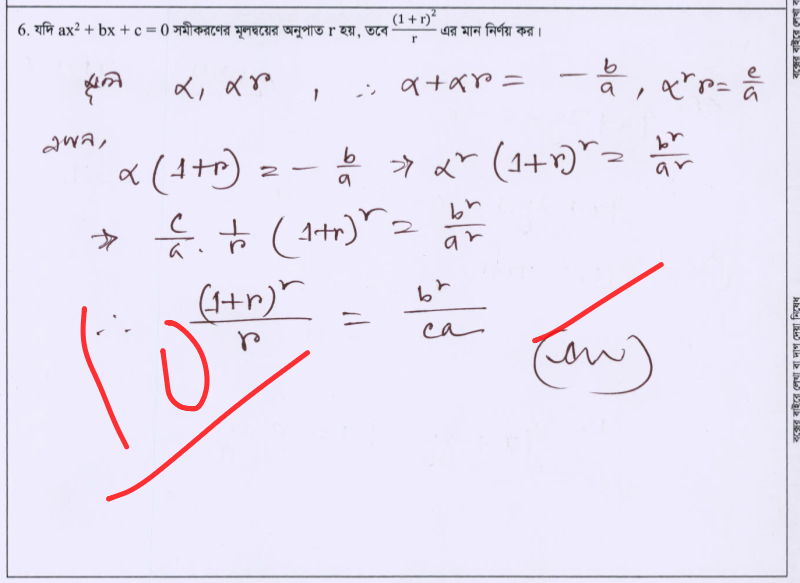 6. যদি ax² + bx + c = 0 সমীকরণের মূলদ্বয়ের অনুপাত r হয়, তবে (1 + r)²/r এর মান নির্ণয় কর।
α, αr, ∴ α + αr = - b/a, α²r = c/a
এখন,
α(1+r) = - b/a ⇒ α²(1+r)² = b²/a²
⇒ c/a · 1/r (1+r)² = b²/a²
∴ (1+r)²/r = b²/ca (Ans)
10
বক্সের বাইরে লেখা বা দাগ দেয়া নিষেধ